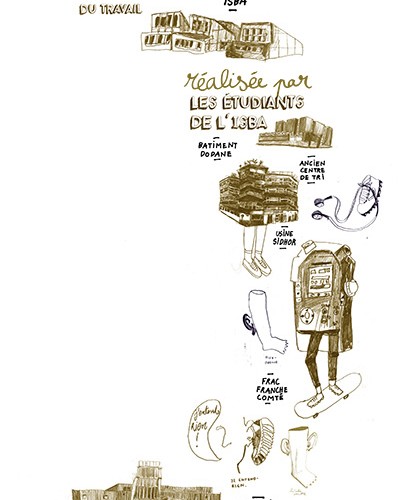 DU TRAVAIL
ISBA
réalisée par
LES ÉTUDIANTS
DE L'ISBA
BATIMENT
DODANE
ANCIEN
CENTRE
DE TRI
USINE
SIDHOR
FRAC
FRANCHE
COMTÉ
J'entends
Rien!
JE ENTEND-
RIEN.